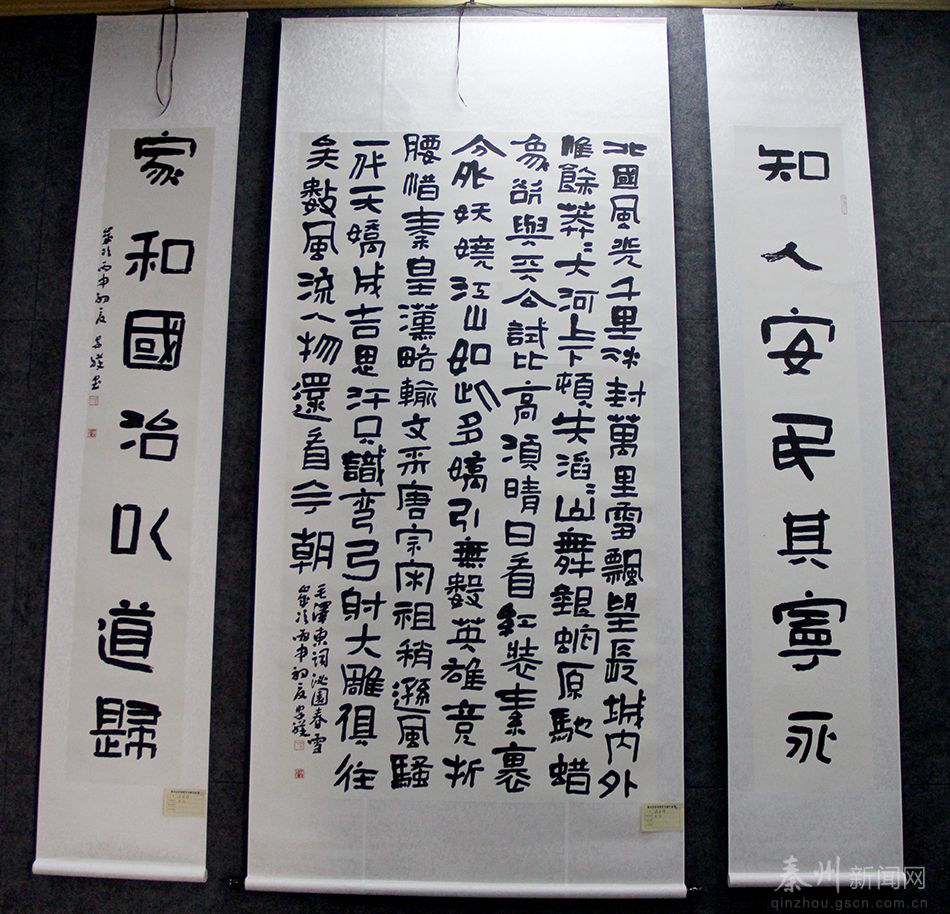 知人安民其寧永
北國風光千里冰封萬里雪飄望長城内外
惟餘莽〻大河上下頓失滔〻山舞銀蛇原馳蜡
象欲與天公試比高須晴日看紅裝素裹
分外妖嬈江山如此多嬌引無數英雄竞折
腰惜秦皇漢略輸文采唐宗宋祖稍遜風騷
一代天嬌成吉思汗只識弯弓射大雕俱往
矣數風流人物還看今朝
毛澤東詞沁園春雪
歲次丙申初夏
家和國治以道歸
歲次丙申初夏
秦州新闻网
qinzhou.gscn.com.cn